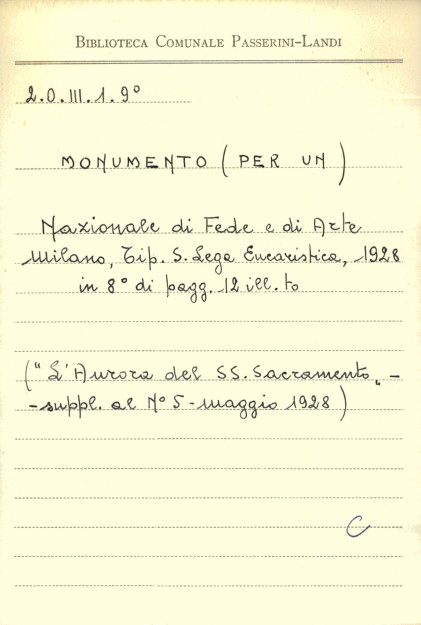 BIBLIOTECA COMUNALE PASSERINI-LANDI
2.O.III.1.9°
MONUMENTO (PER UN)
Nazionale di Fede e di Arte
Milano, Tip. S. Lega Eucaristica, 1928
in 8° di pagg. 12 ill.to
("L'Aurora del SS. Sacramento„ -
-suppl. al N° 5 - maggio 1928)
C